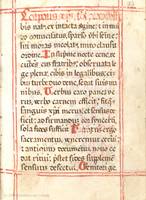 bis nat⁹ ex intacta virgine: et in mū
do conversatus, sparso vbi semine:
sui moras incolatus, miro clausit
ordine. In supreme nocte cene re
cūbens cū fratribus, observata le
ge plene, cibis in legalibus: ci
bum turbe duodene, se dat suis ma
nibus. Verbum caro panē ve
rum, verbo carnem efficit: fitq
sanguis xpi merum, et si sensus de
ficit: ad firmandum cor sincerū
sola fides sufficit. Tantum ergo
sacramentum, veneremur cernui:
et antiquum documentum, novo ce
dat ritui: prestet fides supplemētū
sensuum defectui. Genitori ge